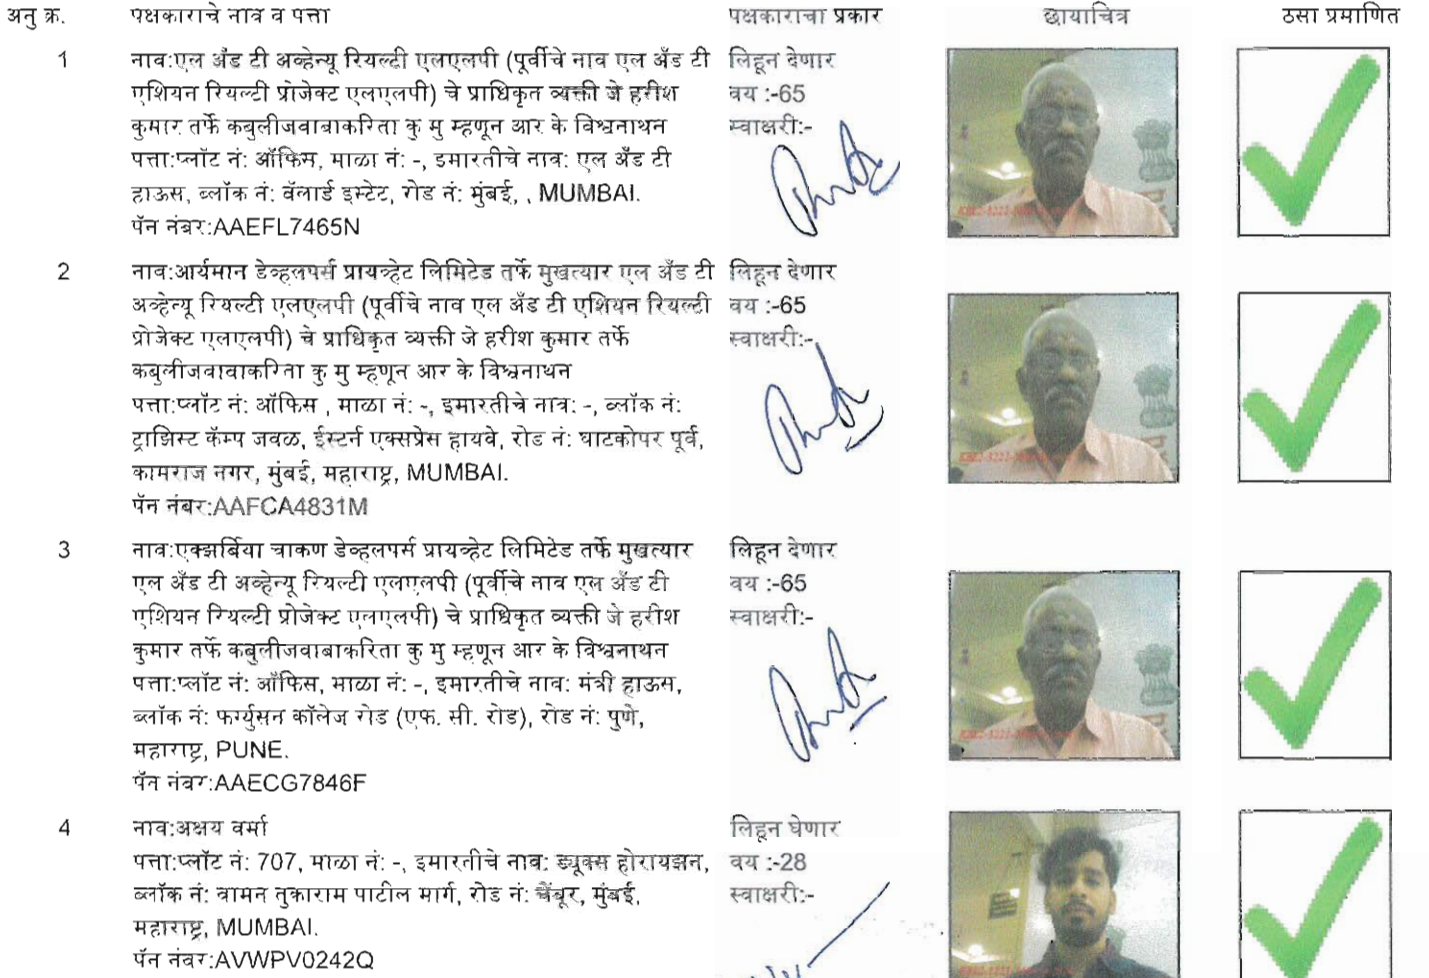 अनु क्र. पक्षकाराचे नाव व पत्ता पक्षकाराचा प्रकार छायाचित्र ठसा प्रमाणित
1 नाव:एल अँड टी अव्हेन्यू रियल्टी एलएलपी (पूर्वीचे नाव एल अँड टी लिहून देणार
एशियन रियल्टी प्रोजेक्ट एलएलपी) चे प्राधिकृत व्यक्ती जे हरीश वय :-65
कुमार तर्फे कबुलीजवाबाकरिता कु मु म्हणून आर के विश्वनाथन स्वाक्षरी:-
पत्ता:प्लॉट नं: ऑफिस, माळा नं: -, इमारतीचे नाव: एल अँड टी
हाऊस, ब्लॉक नं: बॅलार्ड इस्टेट, रोड नं: मुंबई, , MUMBAI.
पॅन नंबर:AAEFL7465N
2 नाव:आर्यमान डेव्हलपर्स प्रायव्हेट लिमिटेड तर्फे मुखत्यार एल अँड टी लिहून देणार
अव्हेन्यू रियल्टी एलएलपी (पूर्वीचे नाव एल अँड टी एशियन रियल्टी वय :-65
प्रोजेक्ट एलएलपी) चे प्राधिकृत व्यक्ती जे हरीश कुमार तर्फे स्वाक्षरी:-
कबुलीजवाबाकरिता कु मु म्हणून आर के विश्वनाथन
पत्ता:प्लॉट नं: ऑफिस , माळा नं: -, इमारतीचे नाव: -, ब्लॉक नं:
ट्राझिस्ट कॅम्प जवळ, ईस्टर्न एक्सप्रेस हायवे, रोड नं: घाटकोपर पूर्व,
कामराज नगर, मुंबई, महाराष्ट्र, MUMBAI.
पॅन नंबर:AAFCA4831M
3 नाव:एक्झर्बिया चाकण डेव्हलपर्स प्रायव्हेट लिमिटेड तर्फे मुखत्यार लिहून देणार
एल अँड टी अव्हेन्यू रियल्टी एलएलपी (पूर्वीचे नाव एल अँड टी वय :-65
एशियन रियल्टी प्रोजेक्ट एलएलपी) चे प्राधिकृत व्यक्ती जे हरीश स्वाक्षरी:-
कुमार तर्फे कबुलीजवाबाकरिता कु मु म्हणून आर के विश्वनाथन
पत्ता:प्लॉट नं: ऑफिस, माळा नं: -, इमारतीचे नाव: मंत्री हाऊस,
ब्लॉक नं: फर्ग्युसन कॉलेज रोड (एफ. सी. रोड), रोड नं: पुणे,
महाराष्ट्र, PUNE.
पॅन नंबर:AAECG7846F
4 नाव:अक्षय वर्मा लिहून घेणार
पत्ता:प्लॉट नं: 707, माळा नं: -, इमारतीचे नाव: ड्यूक्स होरायझन, वय :-28
ब्लॉक नं: वामन तुकाराम पाटील मार्ग, रोड नं: चेंबूर, मुंबई, स्वाक्षरी:-
महाराष्ट्र, MUMBAI.
पॅन नंबर:AVWPV0242Q